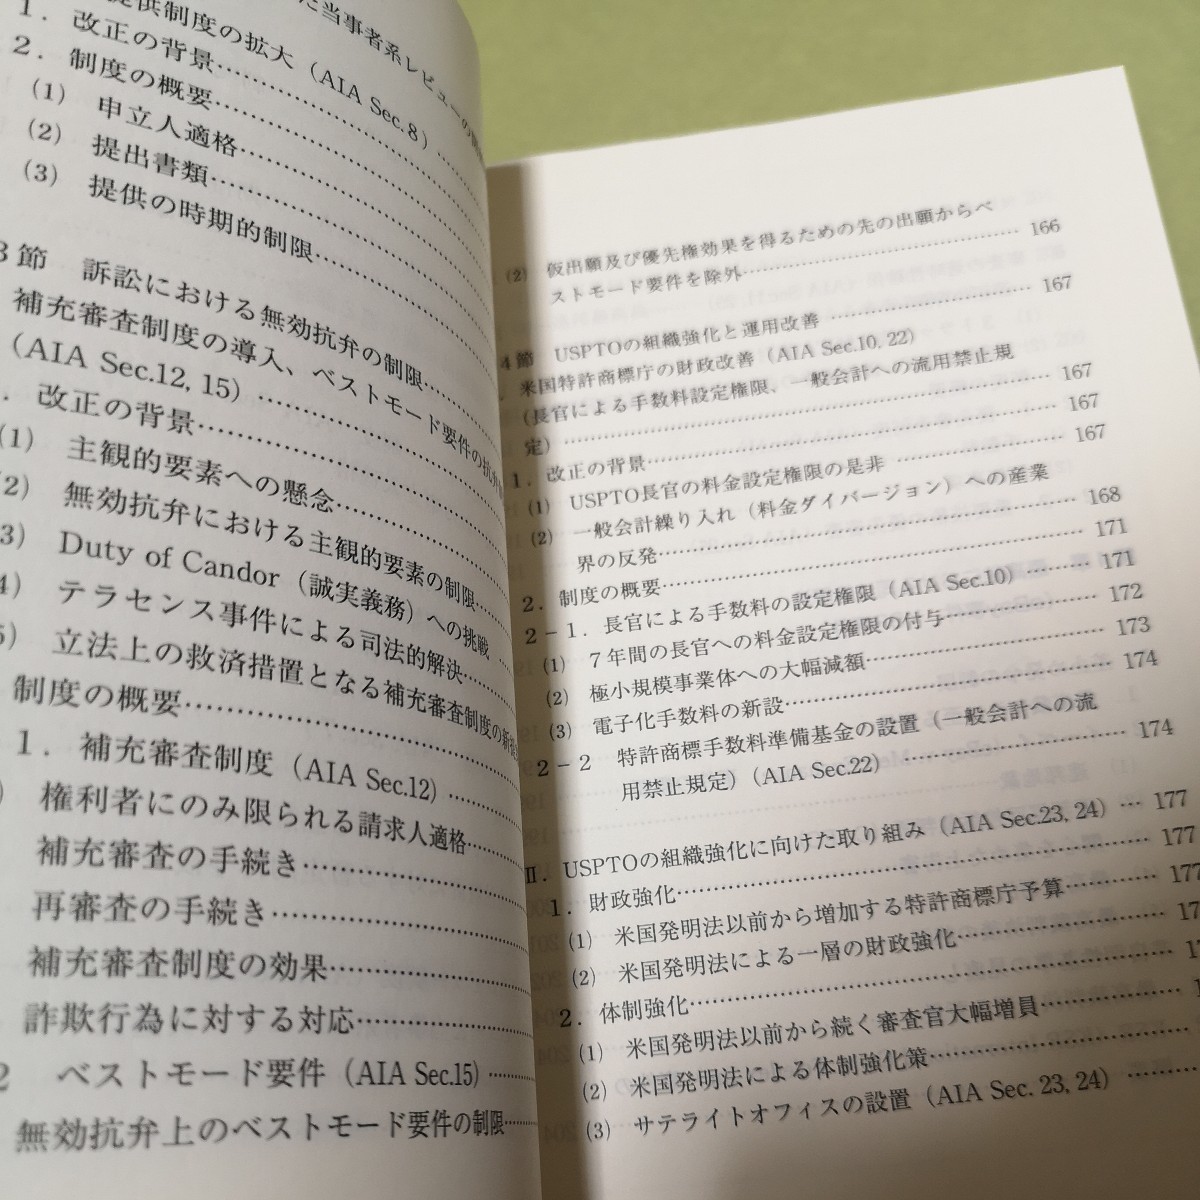 た当事者系レビューの
提供制度の拡大（AIA Sec.8）…
1．改正の背景…
2．制度の概要…
(1) 申立人適格…
(2) 提出書類…
(3) 提供の時期的制限…
3節 訴訟における無効抗弁の制限…
補充審査制度の導入、ベストモード要件の抗弁
（AIA Sec.12, 15）…
．改正の背景…
(1) 主観的要素への懸念…
(2) 無効抗弁における主観的要素の制限…
(3) Duty of Candor（誠実義務）への挑戦…
(4) テラセンス事件による司法的解決…
(5) 立法上の救済措置となる補充審査制度の新
制度の概要…
1．補充審査制度（AIA Sec.12）…
権利者にのみ限られる請求人適格…
補充審査の手続き…
再審査の手続き…
補充審査制度の効果…
詐欺行為に対する対応…
2 ベストモード要件（AIA Sec.15）…
無効抗弁上のベストモード要件の制限…
(2) 仮出願及び優先権効果を得るための先の出願からベ
ストモード要件を除外… 166
4節 USPTOの組織強化と運用改善… 167
．米国特許商標庁の財政改善（AIA Sec.10, 22）
（長官による手数料設定権限、一般会計への流用禁止規
定）… 167
1．改正の背景… 167
(1) USPTO長官の料金設定権限の是非… 167
(2) 一般会計繰り入れ（料金ダイバージョン）への産業
界の反発… 168
2．制度の概要… 171
2－1．長官による手数料の設定権限（AIA Sec.10）… 171
(1) 7年間の長官への料金設定権限の付与… 172
(2) 極小規模事業体への大幅減額… 173
(3) 電子化手数料の新設… 174
2－2 特許商標手数料準備基金の設置（一般会計への流
用禁止規定）（AIA Sec.22）… 174
Ⅱ．USPTOの組織強化に向けた取り組み（AIA Sec.23, 24）… 177
1．財政強化… 177
(1) 米国発明法以前から増加する特許商標庁予算… 177
(2) 米国発明法による一層の財政強化…
2．体制強化…
(1) 米国発明法以前から続く審査官大幅増員…
(2) 米国発明法による体制強化策…
(3) サテライトオフィスの設置（AIA Sec. 23, 24）…